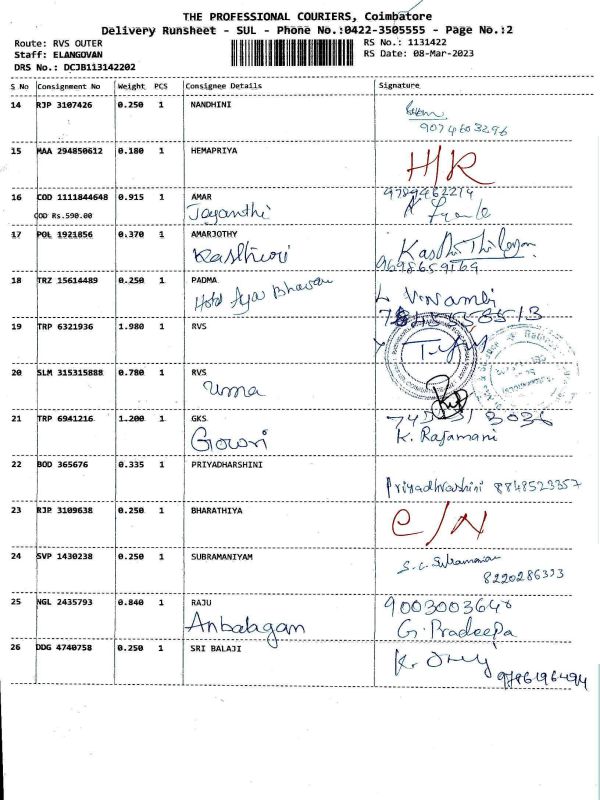 THE PROFESSIONAL COURIERS, Coimbatore
Delivery Runsheet - SUL - Phone No.:0422-3505555 - Page No.:2
Route: RVS OUTER
Staff: ELANGOVAN
DRS No.: DCJB113142202
RS No.: 1131422
RS Date: 08-Mar-2023
S No Consignment No Weight PCS Consignee Details Signature
14 RJP 3107426 0.250 1 NANDHINI
9074603296
15 MAA 294850612 0.180 1 HEMAPRIYA H/R
16 COD 1111844648 0.915 1 AMAR 9789462214
COD Rs.590.00 Jayanthi
17 POL 1921856 0.370 1 AMARJOTHY
9698659169
18 TRZ 15614489 0.250 1 PADMA
19 TRP 6321936 1.980 1 RVS
20 SLM 315315888 0.780 1 RVS
Uma
21 TRP 6941216 1.200 1 GKS
Gowri K. Rajamani
22 BOD 365676 0.335 1 PRIYADHARSHINI
Priyadharshini 8848523357
23 RJP 3109638 0.250 1 BHARATHIYA C/N
24 SVP 1430238 0.250 1 SUBRAMANIYAM
8220286333
25 NGL 2435793 0.840 1 RAJU
Anbalagan G. Pradeepa
26 DDG 4740758 0.250 1 SRI BALAJI
9786196494